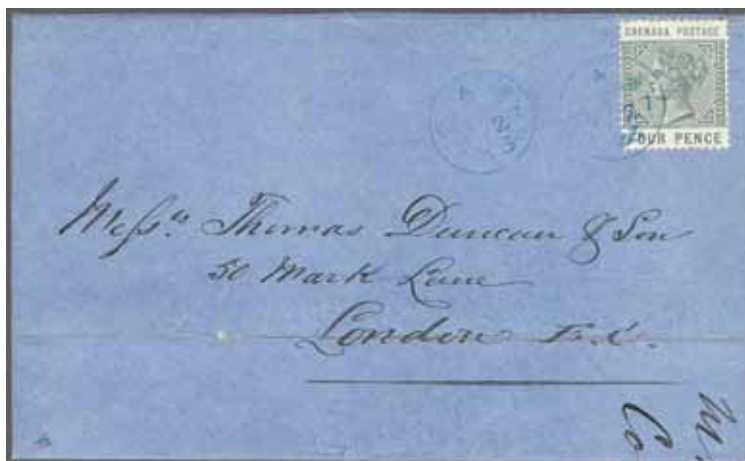 GRENADA POSTAGE
FOUR PENCE
Messrs Thomas Duncan & Son
50 Mark Lane
London E.C.
Co